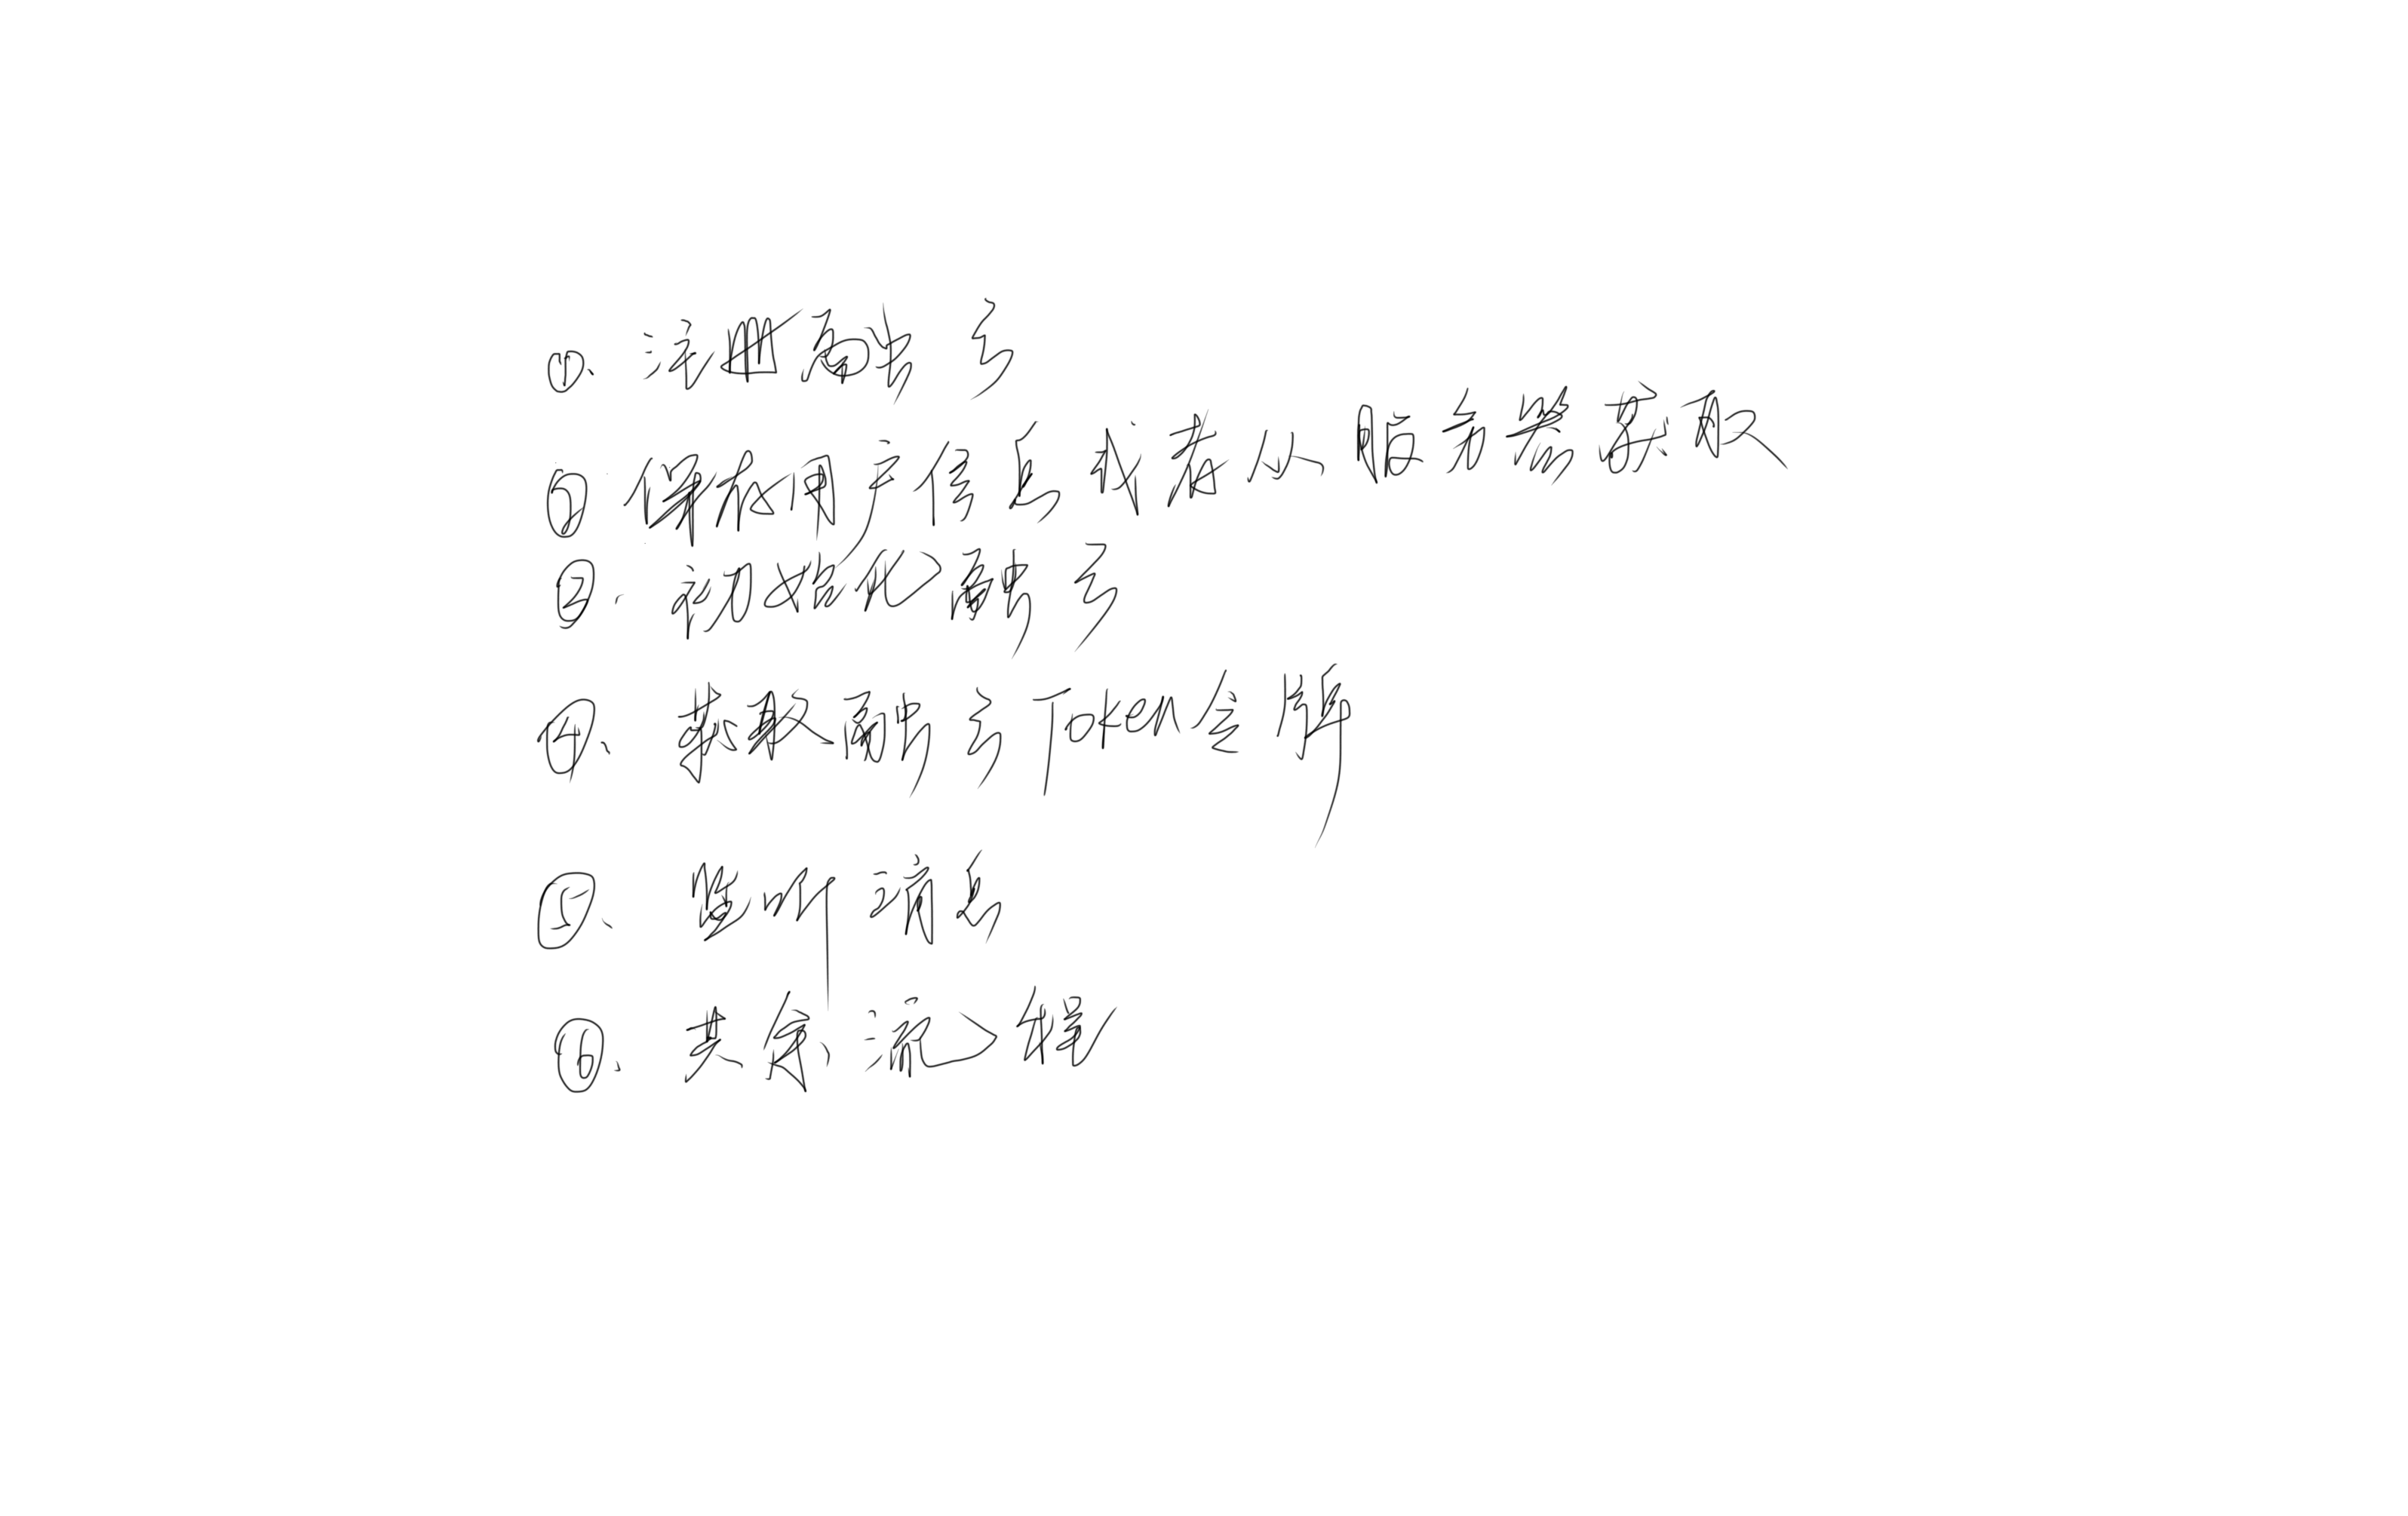 ①、注册融云
② 保存用户信息或者从服务器获取
②、初始化融云
④、获取融云Token令牌
⑤、监听消息
⑥、其余流程